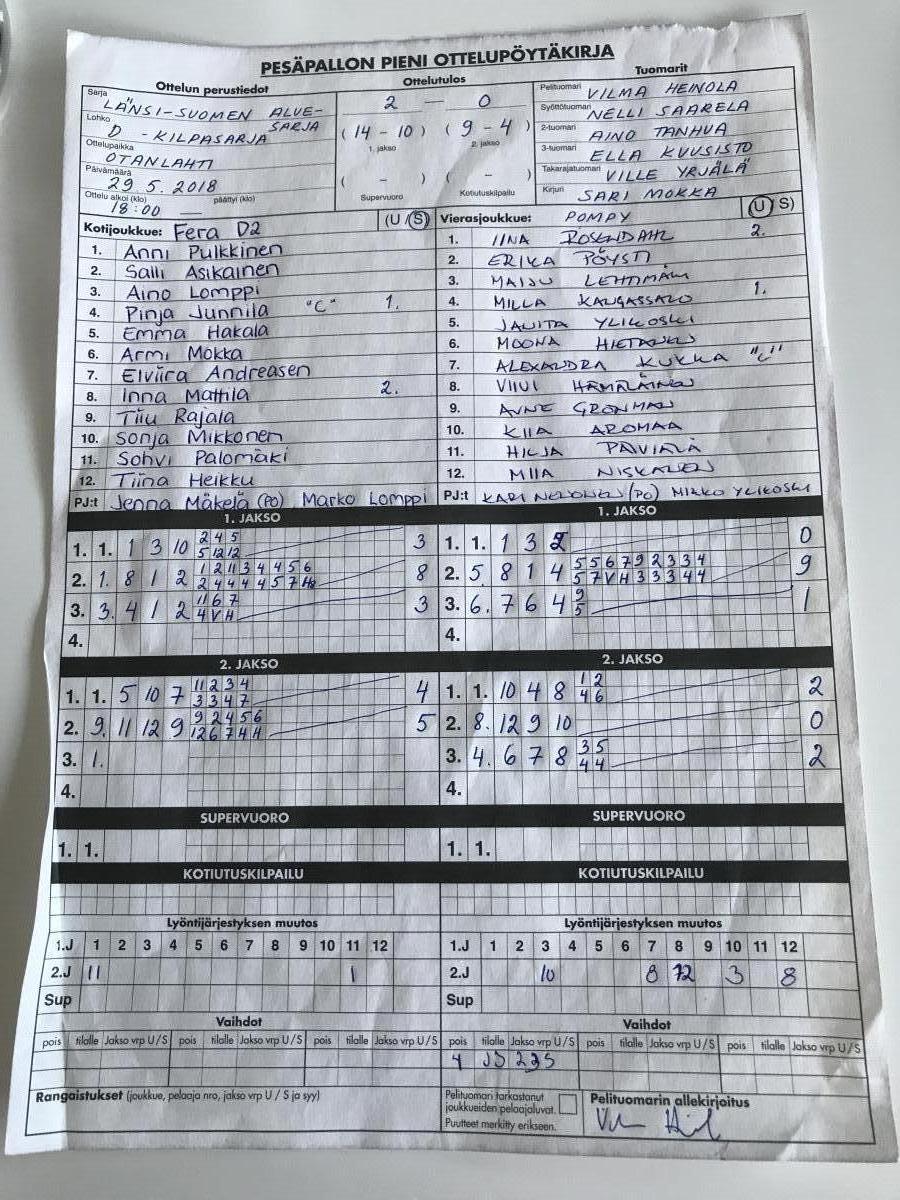 PESÄPALLON PIENI OTTELUPÖYTÄKIRJA
Ottelun perustiedot
Sarja LÄNSI-SUOMEN ALUE-
SARJA
Lohko D -KILPASARJA
Ottelupaikka
OTANLAHTI
Päivämäärä
29.5.2018
Ottelu alkoi (klo) päättyi (klo)
18:00
Ottelutulos
2 — 0
(14 - 10) (9 - 4)
1. jakso 2. jakso
( - ) ( - )
Supervuoro Kotiutuskilpailu
Tuomarit
Pelituomari VILMA HEINOLA
Syöttötuomari NELLI SAARELA
2-tuomari AINO TANHUA
3-tuomari ELLA KUUSISTO
Takarajatuomari VILLE YRJÄLÄ
Kirjuri SARI MOKKA
Kotijoukkue: Fera D2 (U / S)
1. Anni Pulkkinen
2. Salli Asikainen
3. Aino Lomppi
4. Pinja Junnila "C" 1.
5. Emma Hakala
6. Armi Mokka
7. Elviira Andreasen
8. Inna Mattila 2.
9. Tiiu Rajala
10. Sonja Mikkonen
11. Sohvi Palomäki
12. Tiina Heikku
PJ:t Jenna Mäkelä (PO) Marko Lomppi
Vierasjoukkue: POMPY (U / S)
1. IINA ROSENDAHL 2.
2. ERIKA PÖYSTI
3. MAIJU LEHTIMÄKI
4. MILLA KANGASSALO 1.
5. JANITA YLIKOSKI
6. MOONA HIETANEN
7. ALEXANDRA KUKKA "C"
8. VIIVI HÄMÄLÄINEN
9. GRÖNMAN
10. KIIA AROMAA
11. HILJA PÄIVIÄLÄ
12. MIIA NISKANEN
PJ:t KARI (PO) MIKKO YLIKOSKI
1. JAKSO
1. 1. 1 3 10 2 4 5 3
5 12 12
2. 1. 8 1 2 1 2 11 3 4 4 5 6 8
2 4 4 4 4 5 7 H2
3. 3. 4 1 2 11 6 7 3
4 V H
4.
1. JAKSO
1. 1. 1 3 2 0
2. 5. 8 1 4 5 5 6 7 9 2 3 3 4 9
5 7 V H 3 3 3 4 4
3. 6. 7 6 4 9 1
5
4.
2. JAKSO
1. 1. 5 10 7 11 2 3 4 4
3 3 4 7
2. 9. 11 12 9 9 2 4 5 6 5
12 6 7 4 H
3. 1.
4.
2. JAKSO
1. 1. 10 4 8 1 2 2
4 6
2. 8. 12 9 10 0
3. 4. 6 7 8 3 5 2
4 4
4.
SUPERVUORO
1. 1.
SUPERVUORO
1. 1.
KOTIUTUSKILPAILU
KOTIUTUSKILPAILU
Lyöntijärjestyksen muutos
1.J 1 2 3 4 5 6 7 8 9 10 11 12
2.J 11 1
Sup
Lyöntijärjestyksen muutos
1.J 1 2 3 4 5 6 7 8 9 10 11 12
2.J 10 8 12 3 8
Sup
Vaihdot
pois tilalle Jakso vrp U / S pois tilalle Jakso vrp U / S pois tilalle Jakso vrp U / S
Vaihdot
pois tilalle Jakso vrp U / S pois tilalle Jakso vrp U / S pois tilalle Jakso vrp U / S
Rangaistukset (joukkue, pelaaja nro, jakso vrp U / S ja syy)
Pelituomari tarkastanut
joukkueiden pelaajaluvat.
Puutteet merkitty erikseen.
Pelituomarin allekirjoitus